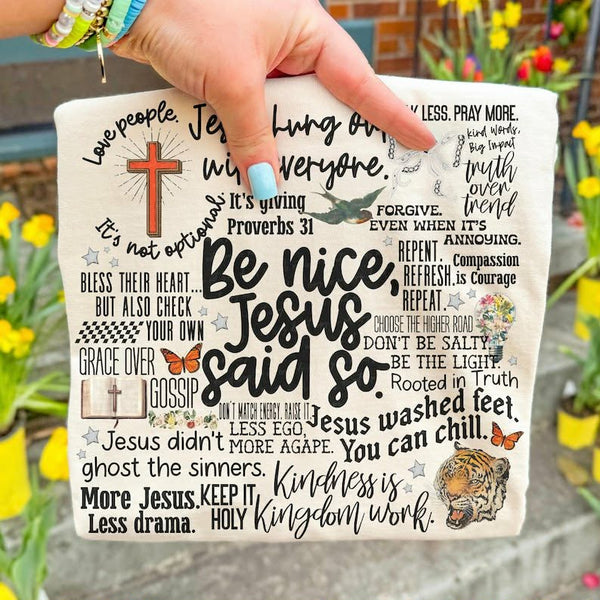 Love people.
It's not optional
Jesus hung out
with everyone.
LESS. PRAY MORE.
kind words,
Big Impact
truth
over
trend
It's giving
Proverbs 31
FORGIVE.
EVEN WHEN IT'S
ANNOYING.
Be nice,
Jesus
said so.
REPENT.
REFRESH.
REPEAT.
Compassion
is Courage
BLESS THEIR HEART...
BUT ALSO CHECK
YOUR OWN
CHOOSE THE HIGHER ROAD
DON'T BE SALTY.
BE THE LIGHT.
Rooted in Truth
GRACE OVER
GOSSIP
DON'T MATCH ENERGY. RAISE IT.
LESS EGO,
MORE AGAPE.
Jesus washed feet.
You can chill.
Jesus didn't
ghost the sinners.
More Jesus.
Less drama.
KEEP IT
HOLY
Kindness is
Kingdom work.